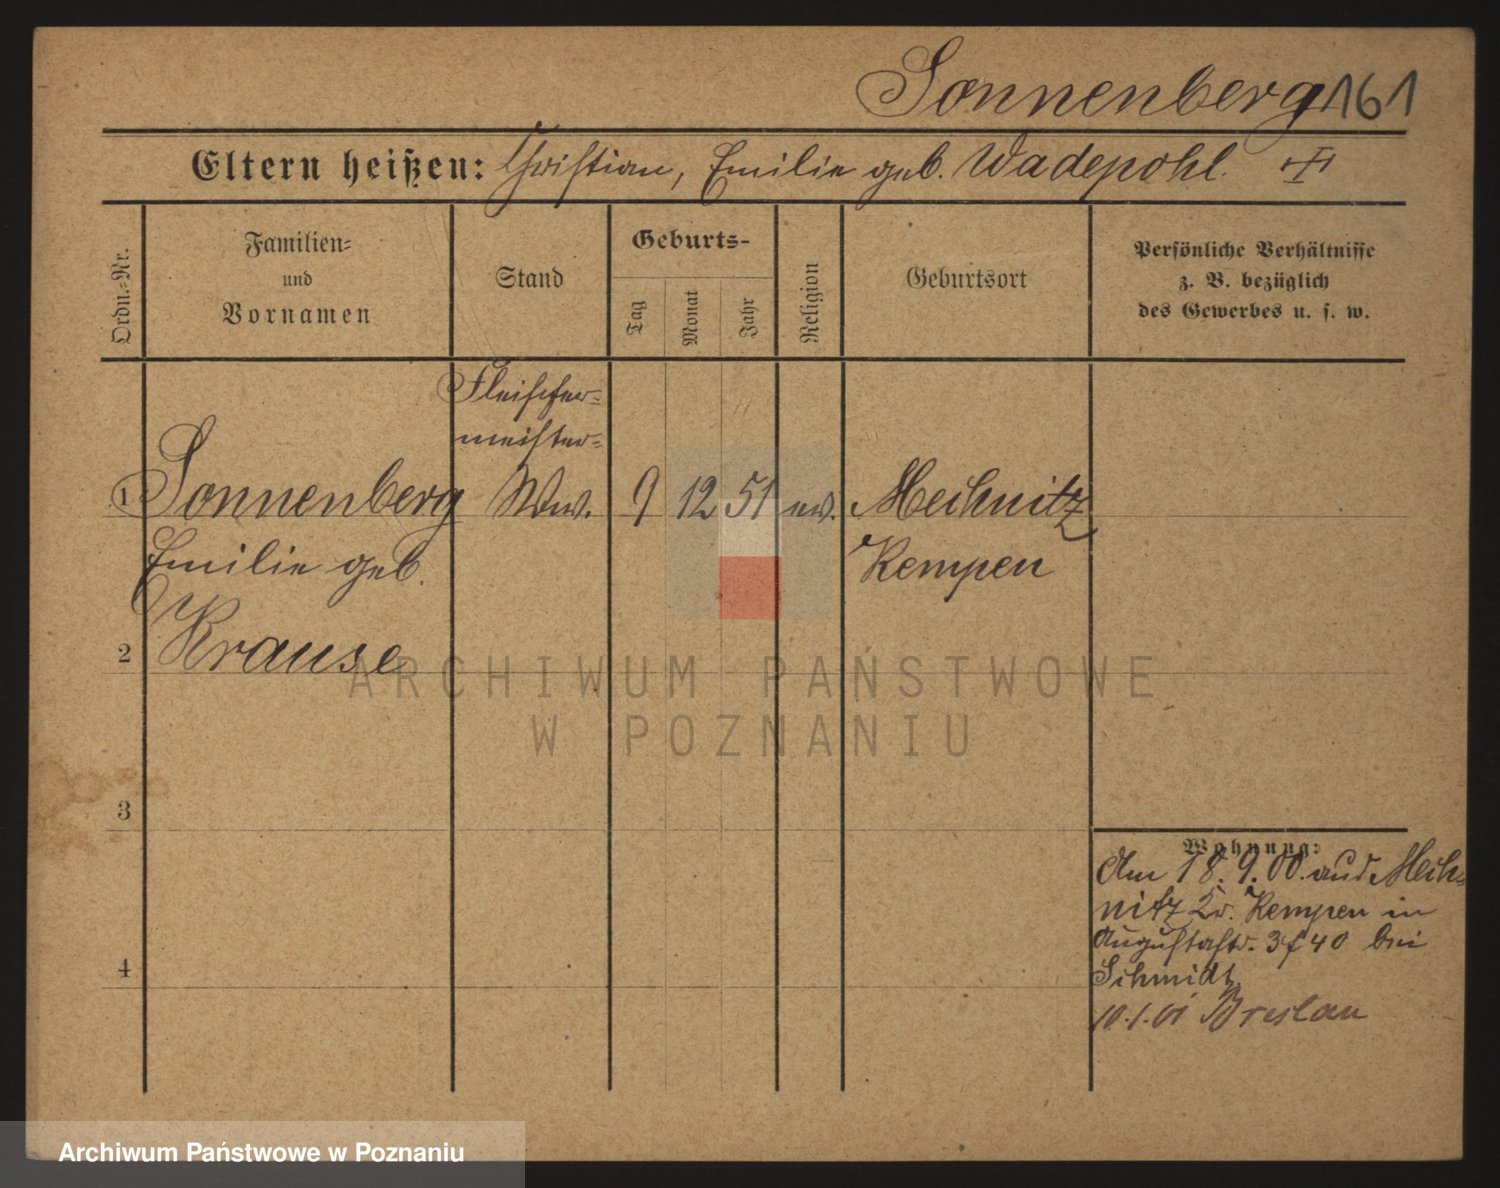 Sonnenberg 161
Eltern heißen: Christian, Emilie geb. Wadepohl.
Ordn.-Nr.
Familien-
und
Vornamen
Stand
Geburts-
Tag
Monat
Jahr
Religion
Geburtsort
Persönliche Verhältnisse
z. B. bezüglich
des Gewerbes u. s. w.
Fleischer-
meister-
1 Sonnenberg Ww. 9 12 51 ev. Mechnitz
Emilie geb. Kempen
2 Krause
3
4
Wohnung:
Am 18.9.00. aus Mech-
nitz Kr. Kempen in
Augustastr. 3 40 bei
Schmidt
10.1.01 Breslau
ARCHIWUM PAŃSTWOWE
W POZNANIU
Archiwum Państwowe w Poznaniu